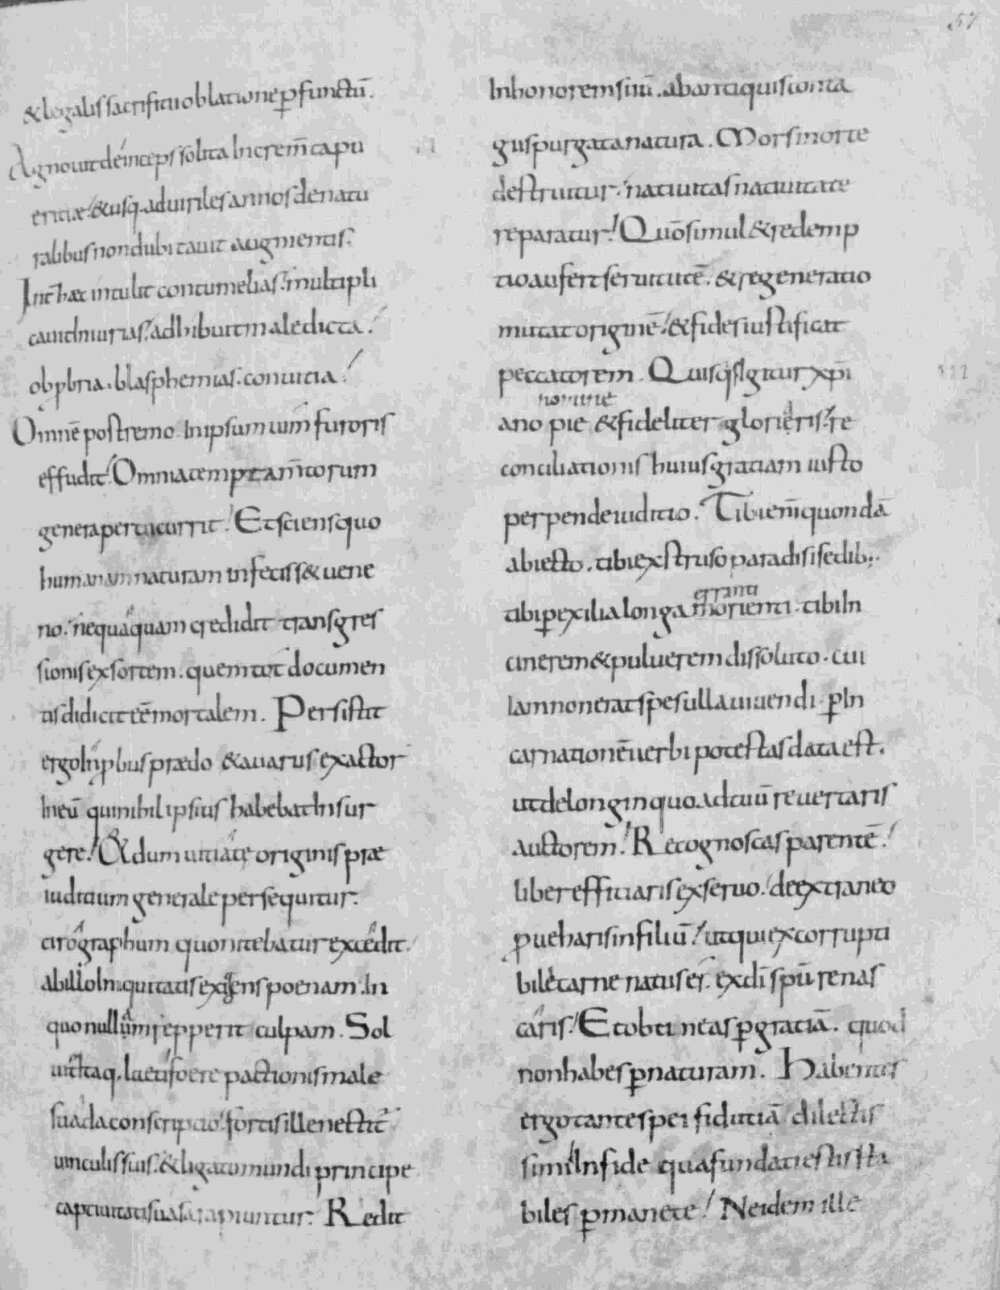 57
&legalis sacrificii oblatione pfunctū.
Agnouit deinceps solita increm̄ta pu
eritiæ. &usq. aduiriles annos denatu
ralibus non dubitauit augmentis.
Inter hæc intulit contumelias. multipli
cauit iniurias. adhibuit maledicta.
obpbria. blasphemias. conuitia.
Omnē postremo. In ipsum uim furoris
effudit. Omnia temptam̄torum
genera percucurrit. Et sciens quo
humanam naturam infecisset uene
no. nequaquam credidit transgres
sionis exsortem. quem tot documen
tis didicit eē mortalem. Persistit
ergo Inpbus prædo &auarus exactor
Ineū qui nihil ipsius habebat Insur
gere. &dum uitiate originis præ
iuditium generale persequitur.
cirographum quo nitebatur excedit.
ab illo Iniquitatis exigens poenam. In
quo nullam repperit culpam. Sol
uit Itaq. laetiferæ pactionis male
suada conscriptio. fortis ille nectit̄
uinculis suis. &ligato mundi principe
captiuitatis uasa rapiuntur. Redit
Inhonorem suū. abantiquis conta
giis purgata natura. Mors morte
destruitur. natiuitas natiuitate
reparatur. Quō simul &redemp
tio aufert seruitutē. &regeneratio
mutat originē. &fides iustificat
peccatorem. Quisqs Igitur xpi
III
nomine
ano pie &fideliter gloriaris. re
conciliationis huius gratiam iusto
perpende iuditio. Tibi eni quondā
abiecto. tibi extruso paradisi sedib;.
erranti
tibi p exilia longa morienti. tibi In
cinerem &puluerem dissoluto. cui
Iam non erat spes ulla uiuendi. p In
carnationē uerbi potestas data est.
ut de longinquo ad tuū reuertaris
auctorem. Recognoscas parentē.
liber efficiaris ex seruo. de extraneo
pueharis in filiū. ut qui ex corrupti
bile carne natus es. ex di spū renas
caris. Et obtineas p gratiā. quod
non habes p naturam. Habentes
ergo tante spei fidutiā dilectis
simi In fide qua fundati estis sta
biles pmanete. Ne idem ille